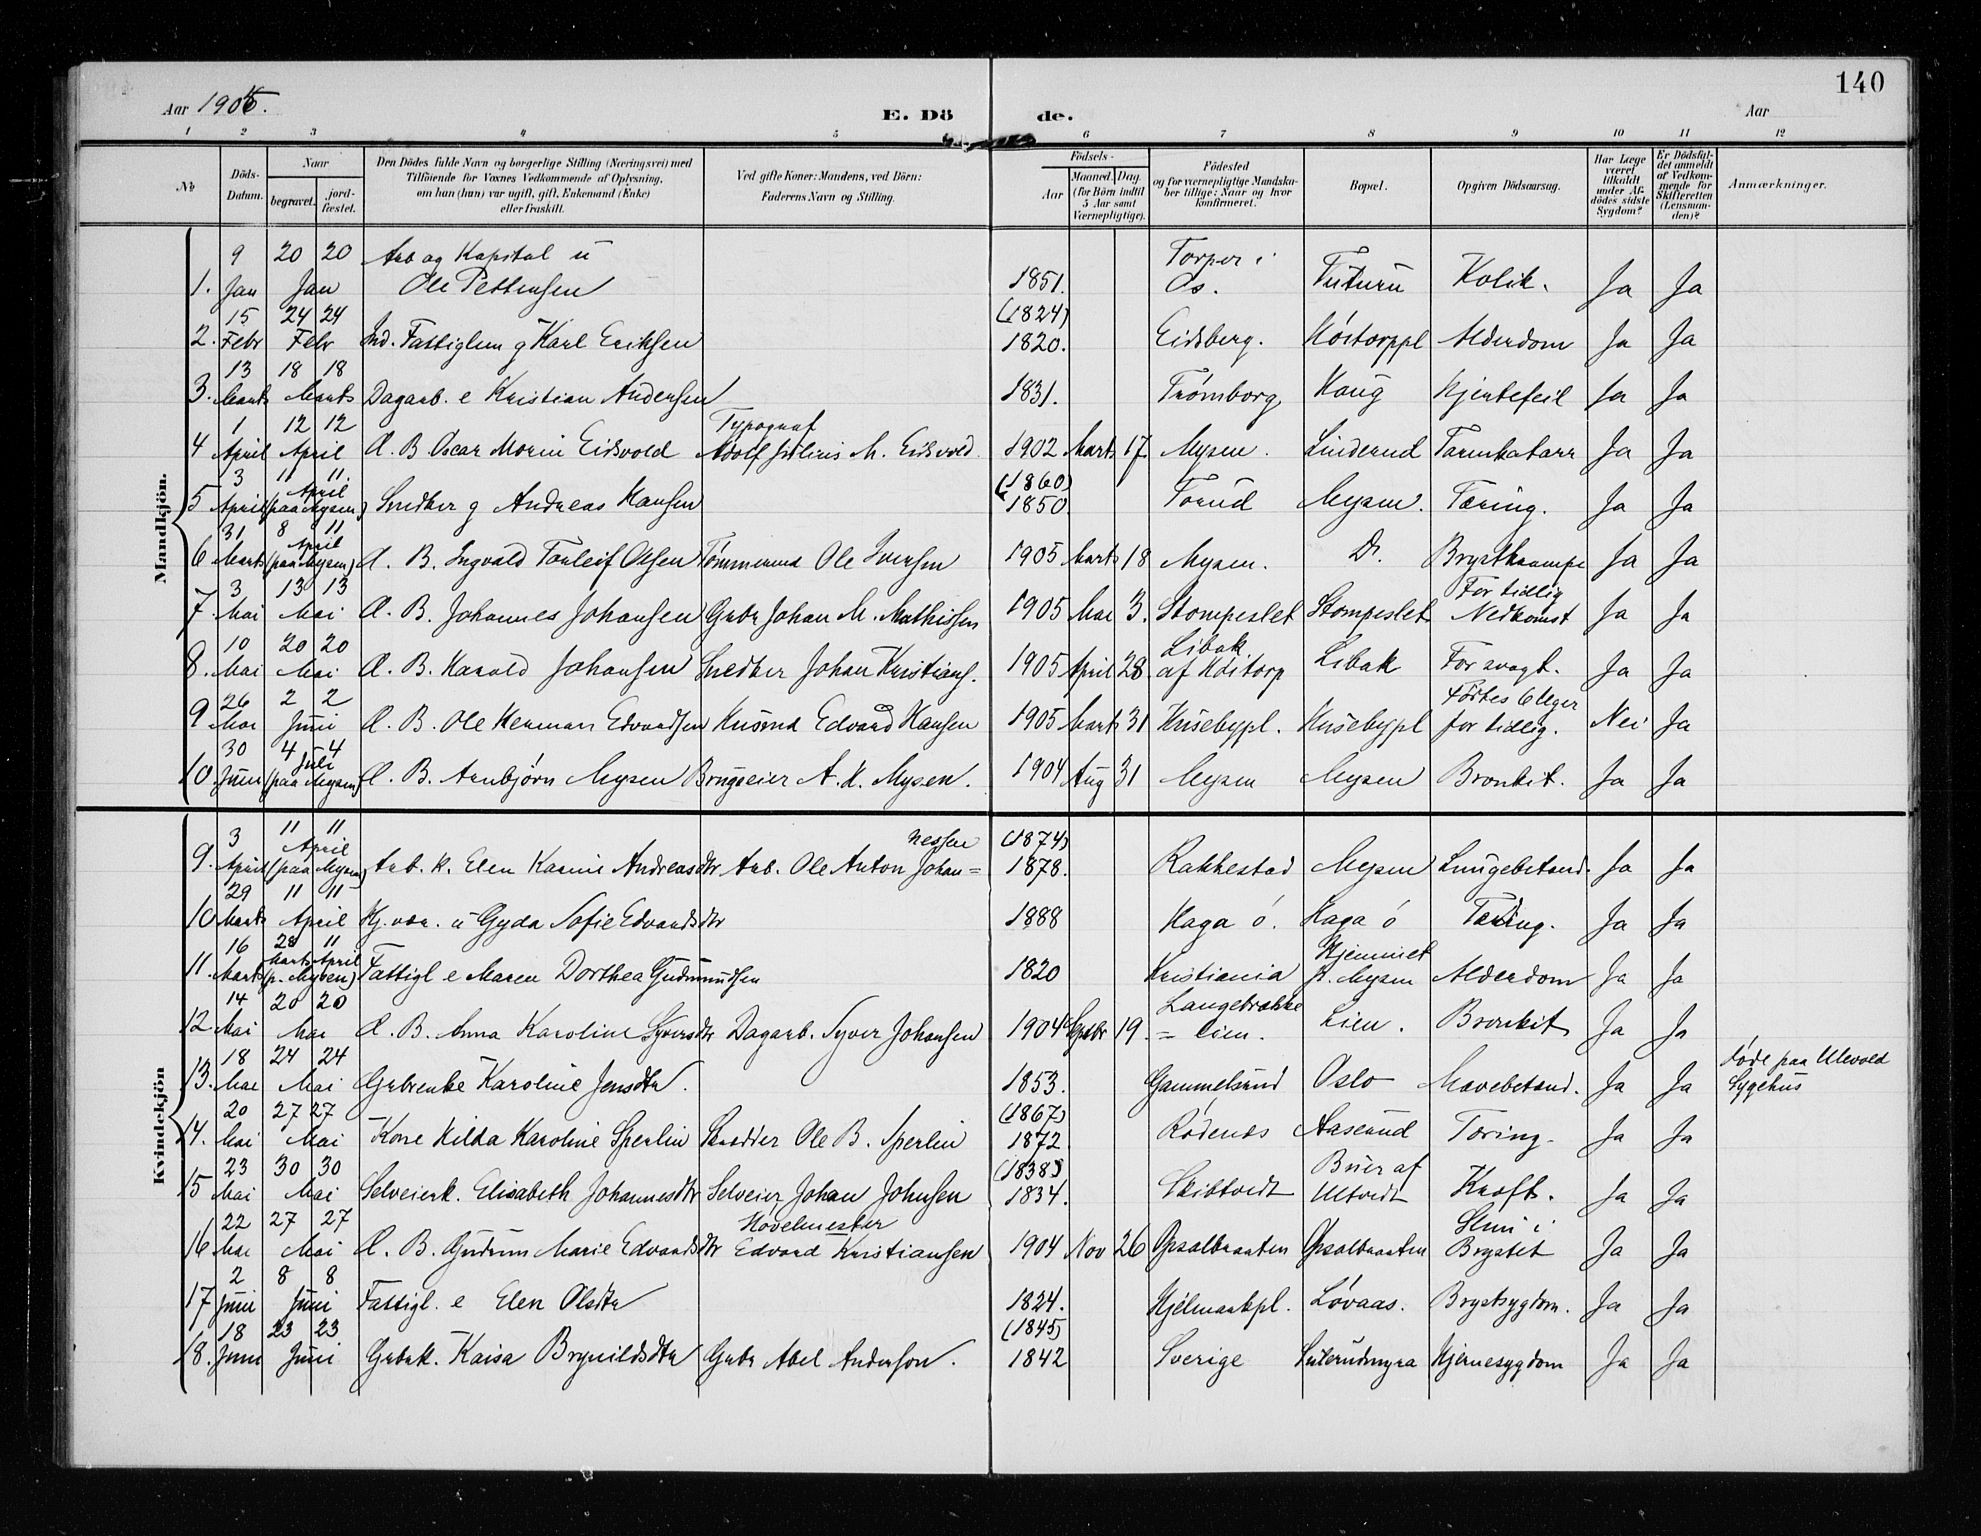 140
Aar 1905.
E. Dö de.
Aar
1 2 3 4 5 6 7 8 9 10 11 12
No
Döds-Datum.
Naar
begravet. jord-fæstet.
Den Dödes fulde Navn og borgerlige Stilling (Næringsvei) med
Tilföiende for Voxnes Vedkommende af Oplysning,
om han (hun) var ugift, gift, Enkemand (Enke)
eller fraskilt.
Ved gifte Koner: Mandens, ved Börn:
Faderens Navn og Stilling.
Födsels-
Aar
Maaned. Dag.
(for Börn indtil
5 Aar samt
Værnepligtige).
Födested
og for værnepligtige Mandska-
ber tillige: Naar og hvor
konfirmeret.
Bopæl.
Opgiven Dödsaarsag.
Har Læge
været
tilkaldt
under Af-
dödes sidste
Sygdom?
Er Dödsfal-
det anmeldt
af Vedkom-
mende for
Skifteretten
(Lensman-
den)?
Anmærkninger.
Mandkjön.
1. 9 Jan 20 20 Jan Arb og Kapital u Ole Pettersen 1851. Torper i Os. Tuturu Kolik. Ja Ja
2. 15 Febr 24 24 Febr Ind. Fattiglem g Karl Eriksen (1824) 1820. Eidsberg. Höitorppl Alderdom Ja Ja
3. 13 Marts 18 18 Marts Dagarb. e Kristian Andersen 1831. Trömborg Haug Hjertefeil Ja Ja
4 1 April 12 12 April Æ. B. Oscar Morin Eidsvold Typograf Adolf Julius M. Eidsvold 1902 Marts 17 Mysen. Linderud Tarmkatarr Ja Ja
5 3 April 11 11. April (paa Mysen) Snedker g Andreas Hansen (1860) 1850 Torud Mysen. Tæring. Ja Ja
6 31 Marts 8 11 April (paa Mysen) Æ. B. Ingvald Torleif Olsen Tömmermd Ole Iversen 1905 Marts 18 Mysen. Do. Brystkrampe Ja Ja
7. 3 Mai 13 13 Mai Æ. B. Johannes Johansen Gubr Johan M. Mathissen 1905 Mai 3. Stompeslet Stompeslet For tidlig Nedkomst Ja Ja
8. 10 Mai 20 20 Mai Æ. B. Harald Johansen Snedker Johan Kristians. 1905 April 28. Libak af Höitorp Libak For svagt. Ja Ja
9 26 Mai 2 2 Juni Æ. B. Ole Herman Edvardsen Husmd Edvard Hansen 1905 Marts 31 Husebypl. Husebypl Födtes 6 Uger for tidlig. Nei Ja
10. 30 Juni 4 4 Juli (paa Mysen) Æ. B. Arnbjörn Mysen Brugseier A. H. Mysen. 1904 Aug 31 Mysen Mysen Bronkit. Ja Ja
Kvindekjön
9. 3 April 11 11 April (paa Mysen) Arb. k. Elen Karine Andreasdtr Arb. Ole Anton Johan=nessen (1874) 1878. Rakkestad Mysen Lungebetænd. Ja Ja
10 29 Marts 11 11 April Hj. vær. u Gyda Sofie Edvardsdtr 1888 Haga ö. Haga ö Tæring. Ja Ja
11. 16 Marts 28 Marts 11 April (p. Mysen) Fattigl e Maren Dorthea Gudmundsen 1820 Kristiania Hjemmet p. Mysen Alderdom Ja Ja
12. 14 Mai 20 20 Mai Æ. B. Anna Karoline Syversdtr Dagarb. Syver Johansen 1904 19. Langebrække=lien. Lien. Bronkit Ja Ja
13. 18 Mai 24 24 Mai Gubrenke Karoline Jensdtr. 1853. Gammelsrud Oslo Mavebetænd. Ja Ja döde paa Ulevold Sygehus
14. 20 Mai 27 27 Mai Kone Hilda Karoline Sperlin Skrædder Ole B. Sperlin (1867) 1872 Rödenæs Aaserud Tæring. Ja Ja
15 23 Mai 30 30 Mai Selveierk. Elisabeth Johannesdtr Selveier Johan Johnsen (1838) 1834. Skibtvedt Buer af Ultvedt Kræft. Ja Ja
16 22 Mai 27 27 Mai Æ. B. Gudrun Marie Edvardsdtr Hovelmester Edvard Kristiansen 1904 Nov 26 Opsalbraaten Opsalbraaten Slim i Brystet Ja Ja
17 2 Juni 8 8 Juni Fattigl. e Elen Olsdtr 1824. Hjelmarkpl. Lövaas. Brystsygdom. Ja Ja
18. 18 Juni 23 23 Juni Gubrk. Kaisa Brynildsdtr Gubr Abel Anderson. (1845) 1842 Sverige Sulerudmyra Hjernesygdom Ja Ja